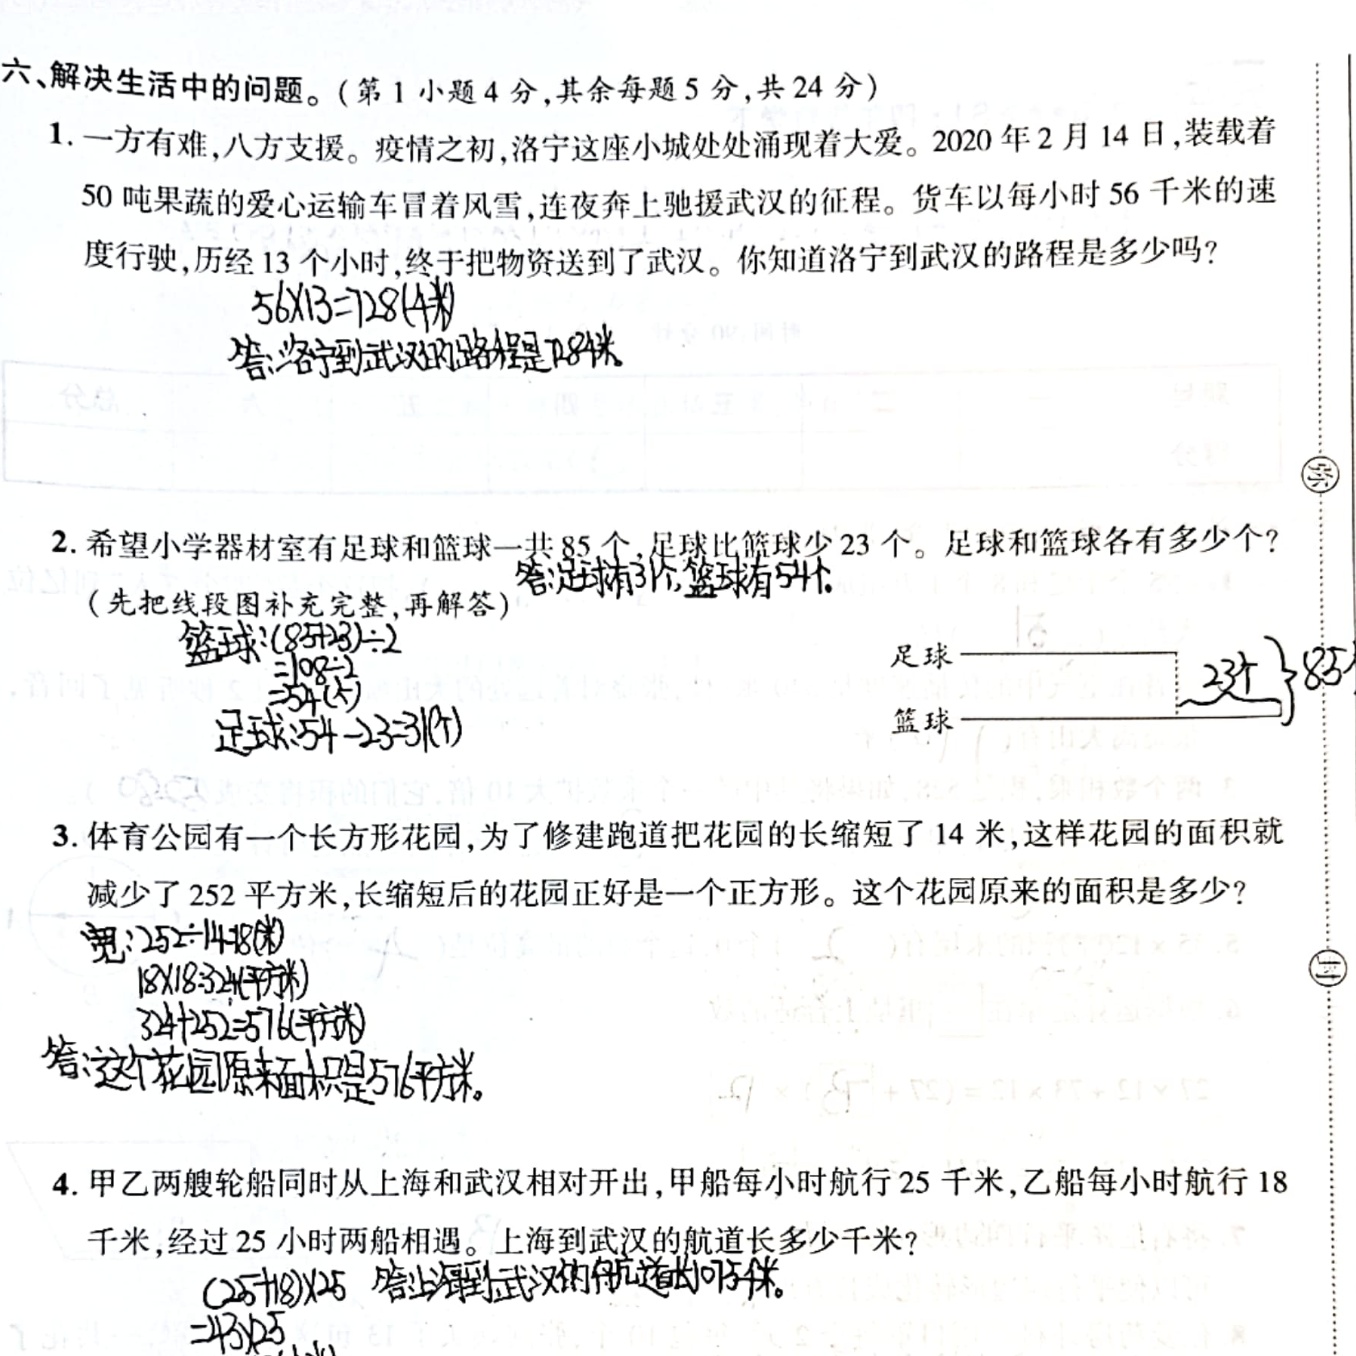 六、解决生活中的问题。(第1小题4分,其余每题5分,共24分)
1. 一方有难,八方支援。疫情之初,洛宁这座小城处处涌现着大爱。2020年2月14日,装载着
50吨果蔬的爱心运输车冒着风雪,连夜奔上驰援武汉的征程。货车以每小时56千米的速
度行驶,历经13个小时,终于把物资送到了武汉。你知道洛宁到武汉的路程是多少吗?
56×13=728(千米)
答:洛宁到武汉的路程是728千米。
2. 希望小学器材室有足球和篮球一共85个,足球比篮球少23个。足球和篮球各有多少个?
答:足球有31个,篮球有54个。
(先把线段图补充完整,再解答)
篮球:(85+23)÷2
=108÷2
=54(个)
足球:54-23=31(个)
足球
23个
85
篮球
3. 体育公园有一个长方形花园,为了修建跑道把花园的长缩短了14米,这样花园的面积就
减少了252平方米,长缩短后的花园正好是一个正方形。这个花园原来的面积是多少?
宽:252÷14=18(米)
18×18=324(平方米)
324+252=576(平方米)
答:这个花园原来面积是576平方米。
4. 甲乙两艘轮船同时从上海和武汉相对开出,甲船每小时航行25千米,乙船每小时航行18
千米,经过25小时两船相遇。上海到武汉的航道长多少千米?
(25+18)×25 答:上海到武汉的航道长1075千米。
=43×25